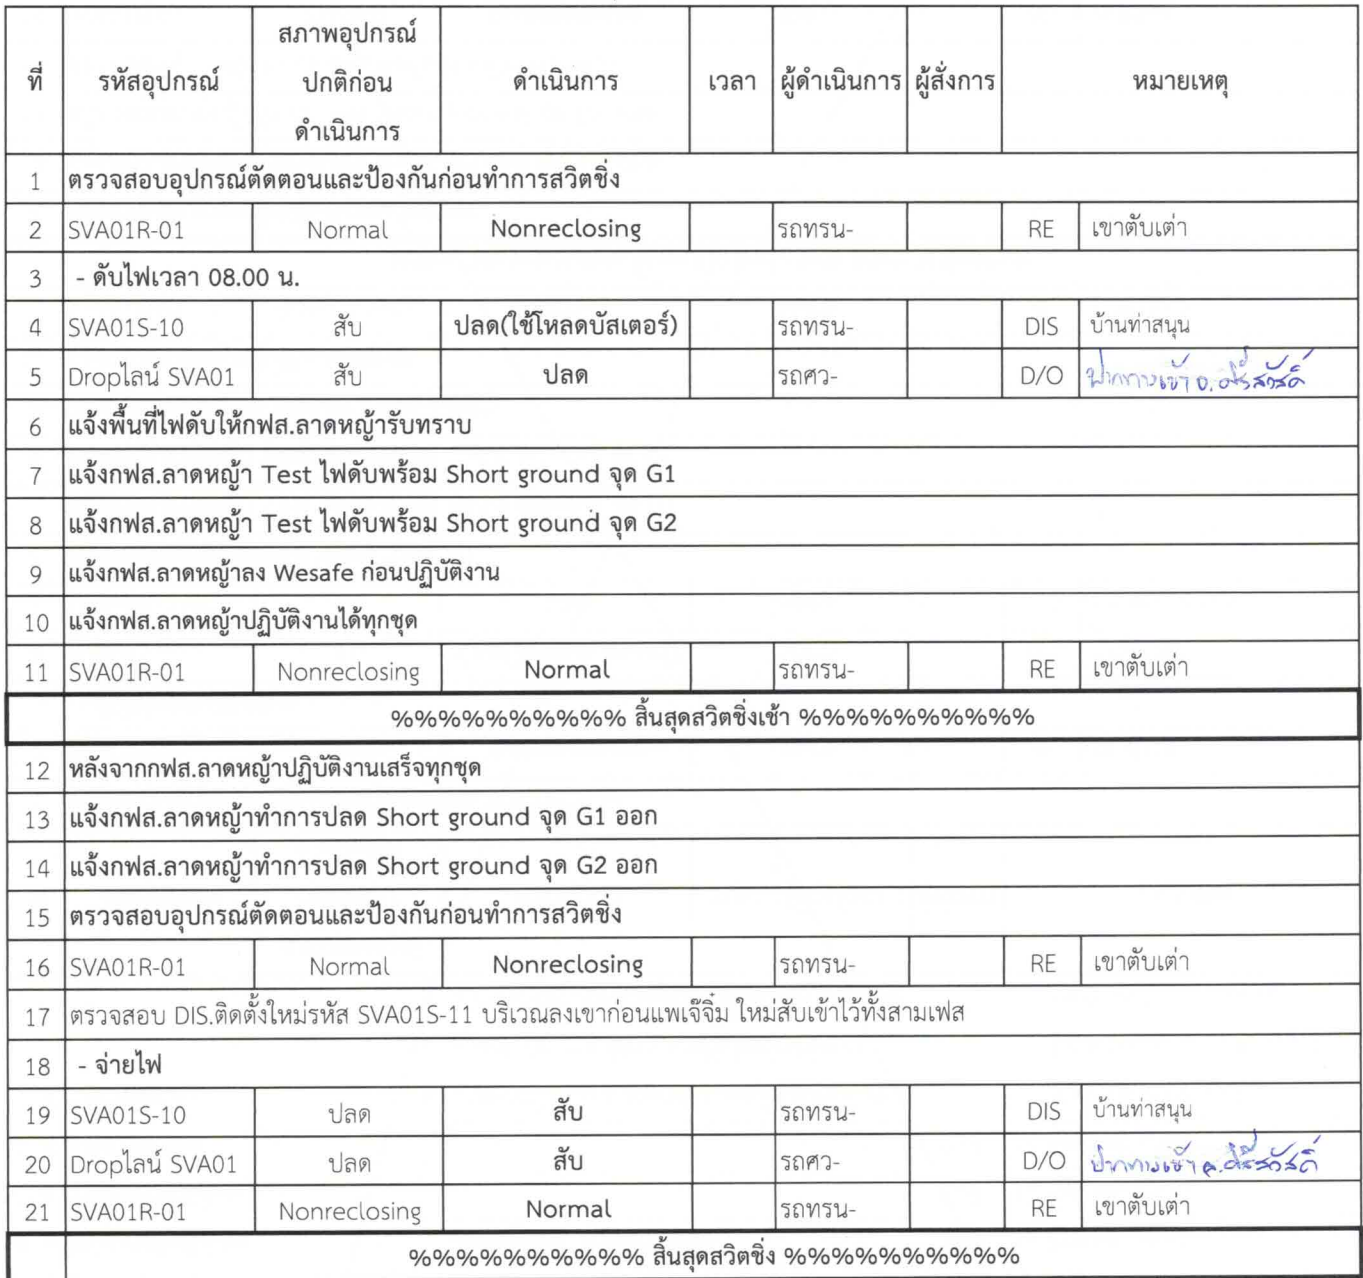 ที่ รหัสอุปกรณ์ สภาพอุปกรณ์ปกติก่อนดำเนินการ ดำเนินการ เวลา ผู้ดำเนินการ ผู้สั่งการ หมายเหตุ
1 ตรวจสอบอุปกรณ์ตัดตอนและป้องกันก่อนทำการสวิตชิ่ง
2 SVA01R-01 Normal Nonreclosing รถทรน- RE เขาตับเต่า
3 - ดับไฟเวลา 08.00 น.
4 SVA01S-10 สับ ปลด(ใช้โหลดบัสเตอร์) รถทรน- DIS บ้านท่าสนุน
5 Dropไลน์ SVA01 สับ ปลด รถศว- D/O ปากทางเข้า อ.ศรีสวัสดิ์
6 แจ้งพื้นที่ไฟดับให้กฟส.ลาดหญ้ารับทราบ
7 แจ้งกฟส.ลาดหญ้า Test ไฟดับพร้อม Short ground จุด G1
8 แจ้งกฟส.ลาดหญ้า Test ไฟดับพร้อม Short ground จุด G2
9 แจ้งกฟส.ลาดหญ้าลง Wesafe ก่อนปฏิบัติงาน
10 แจ้งกฟส.ลาดหญ้าปฏิบัติงานได้ทุกชุด
11 SVA01R-01 Nonreclosing Normal รถทรน- RE เขาตับเต่า
%%%%%%%%%% สิ้นสุดสวิตชิ่งเช้า %%%%%%%%%%
12 หลังจากกฟส.ลาดหญ้าปฏิบัติงานเสร็จทุกชุด
13 แจ้งกฟส.ลาดหญ้าทำการปลด Short ground จุด G1 ออก
14 แจ้งกฟส.ลาดหญ้าทำการปลด Short ground จุด G2 ออก
15 ตรวจสอบอุปกรณ์ตัดตอนและป้องกันก่อนทำการสวิตชิ่ง
16 SVA01R-01 Normal Nonreclosing รถทรน- RE เขาตับเต่า
17 ตรวจสอบ DIS.ติดตั้งใหม่รหัส SVA01S-11 บริเวณลงเขาก่อนแพเจ๊จิ๋ม ใหม่สับเข้าไว้ทั้งสามเฟส
18 - จ่ายไฟ
19 SVA01S-10 ปลด สับ รถทรน- DIS บ้านท่าสนุน
20 Dropไลน์ SVA01 ปลด สับ รถศว- D/O ปากทางเข้า อ.ศรีสวัสดิ์
21 SVA01R-01 Nonreclosing Normal รถทรน- RE เขาตับเต่า
%%%%%%%%%% สิ้นสุดสวิตชิ่ง %%%%%%%%%%